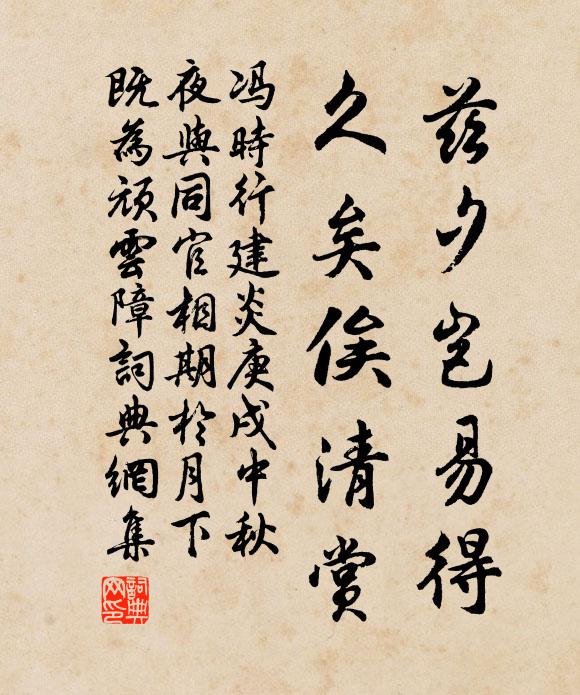 茲夕豈易得
久矣俟清賞
馮時行建炎庚戌中秋
夜與同官相期於月下
既為頑雲障詞典網集
詞典網印